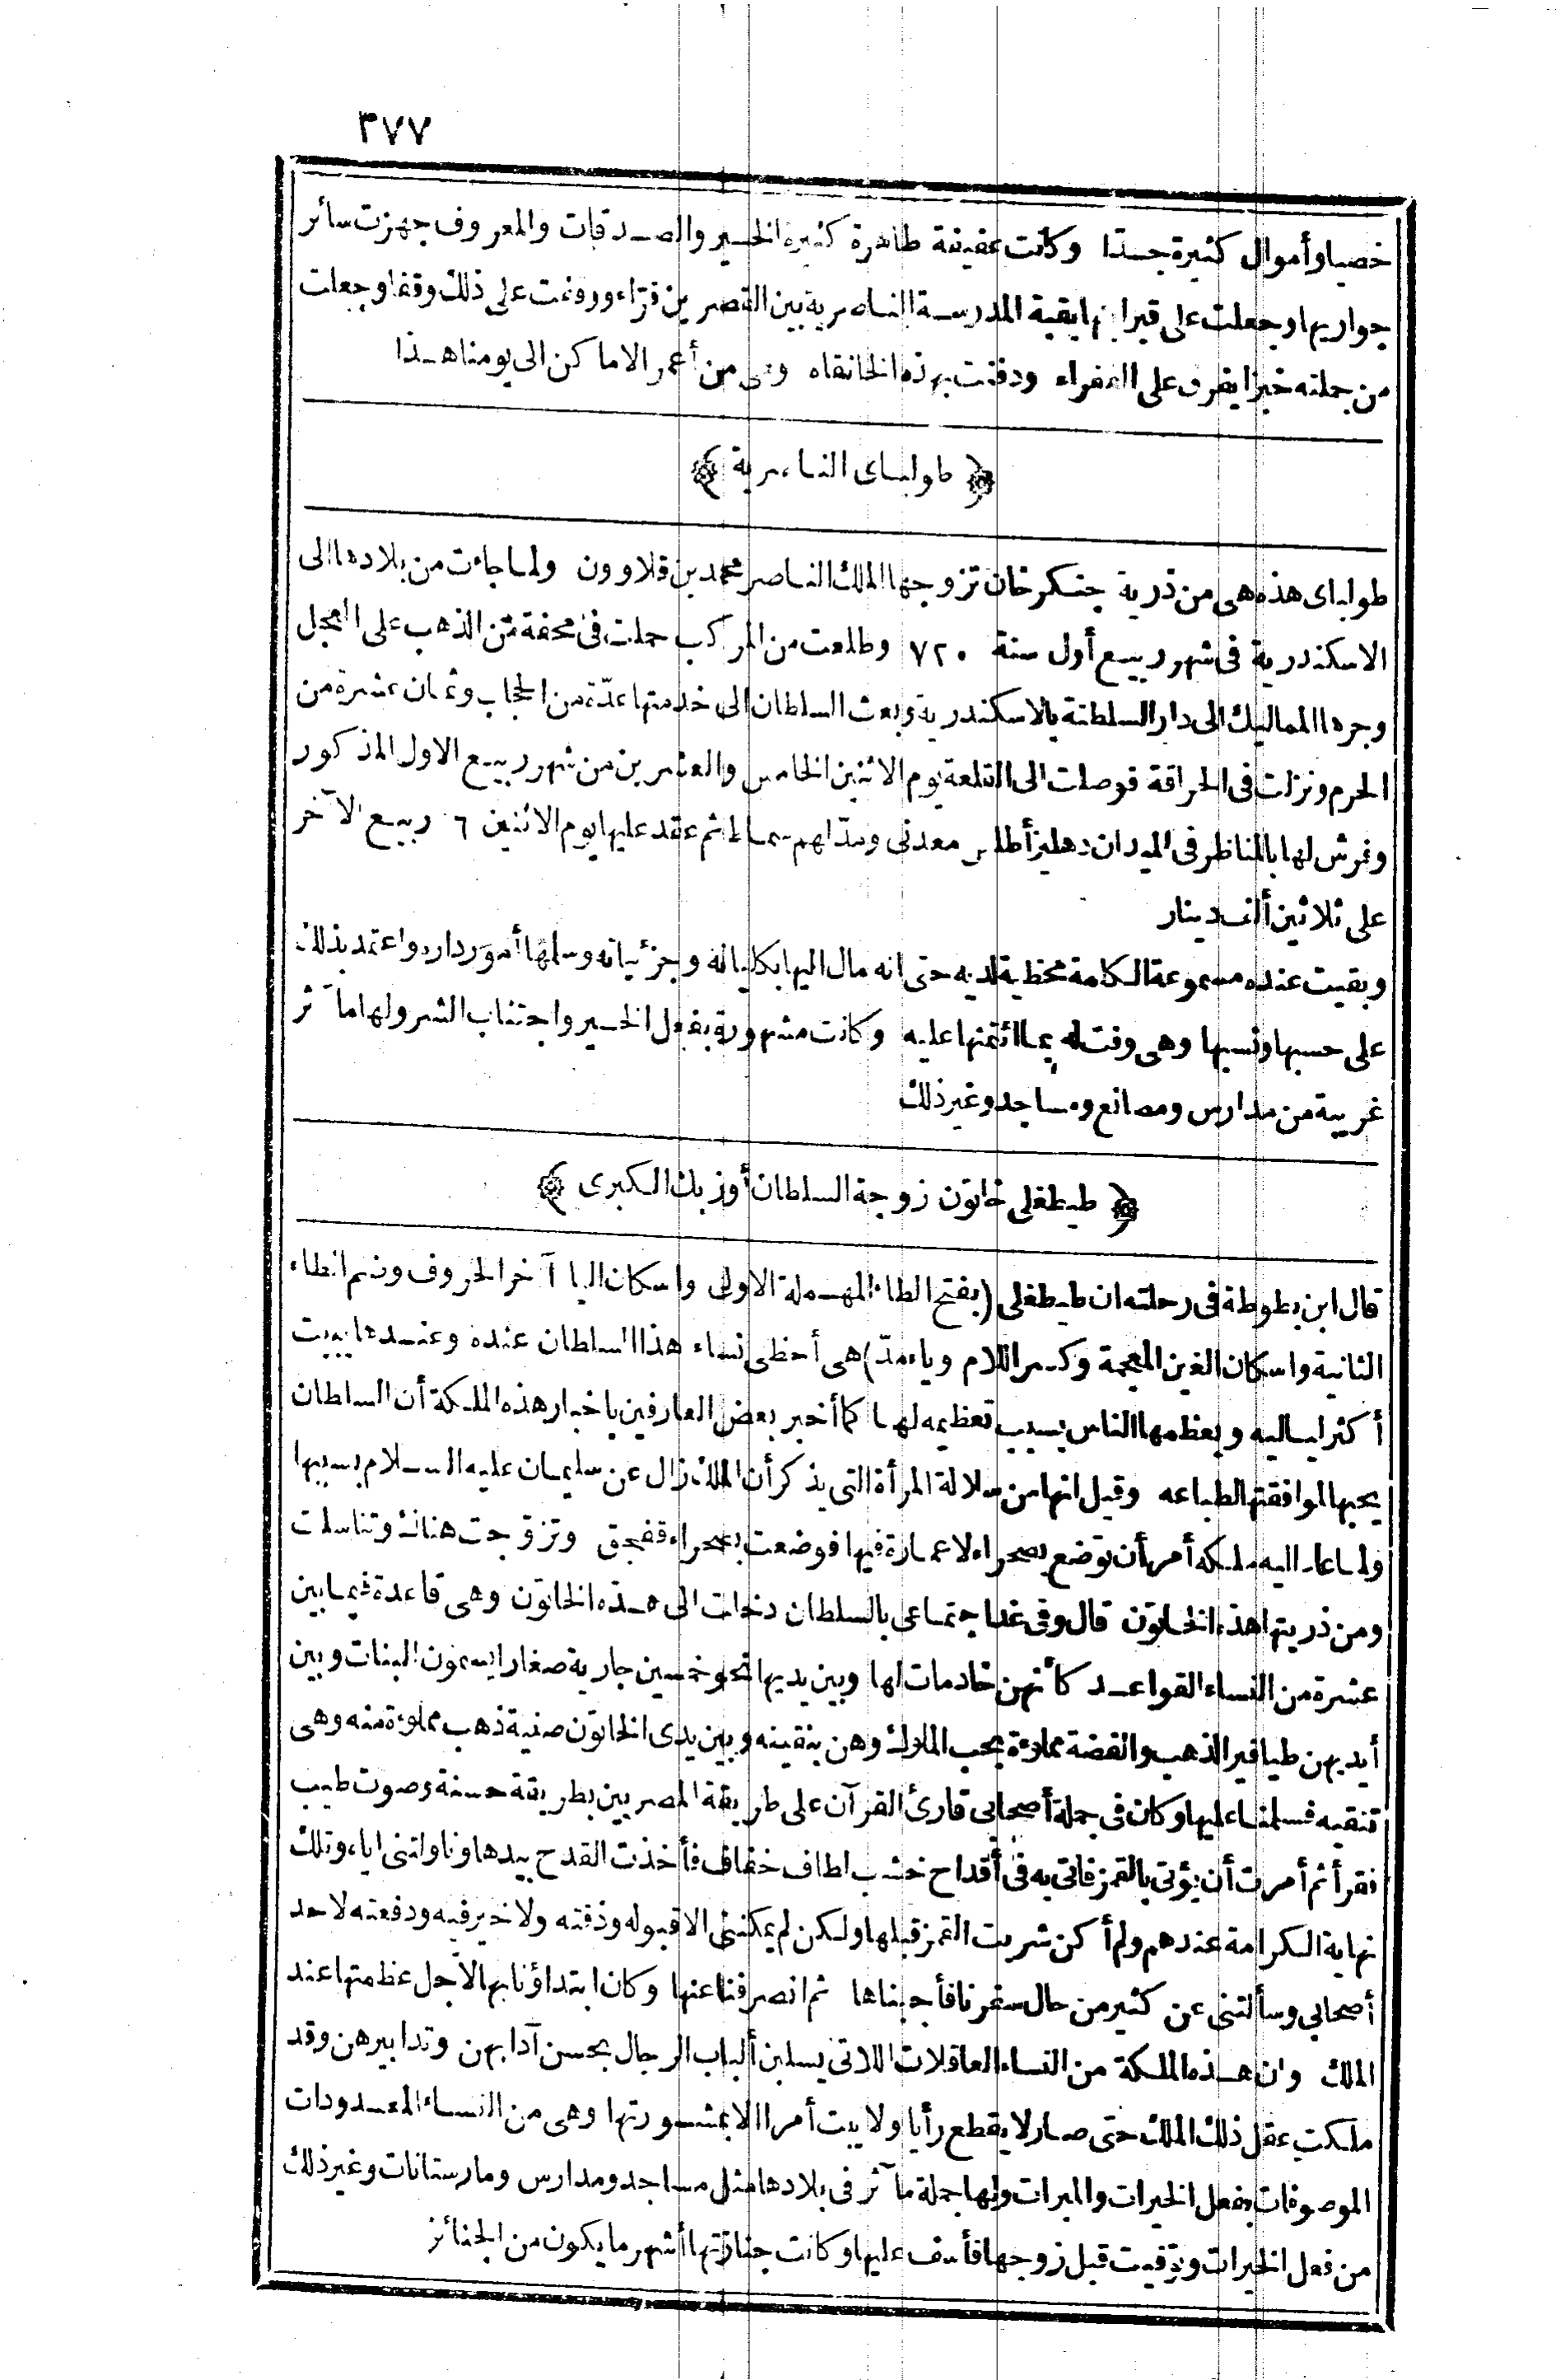 ٣٧٧
خصيا وأموال كثيرة جدّا وكانت عفيفة طاهرة كثيرة الخير والصدقات والمعروف جهزت سائر
جواريها وجعلت على قبر ابنها بقبة المدرسة الناصرية بين القصرين قرّاء ووقفت على ذلك وقفا وجعلت
من جملته خبزا يفرق على الفقراء ودفنت بهذه الخانقاه وهى من أعمر الاماكن الى يومنا هذا
﴿ طولباى الناصرية ﴾
طولباى هذه هى من ذرية جنكز خان تزوجها الملك الناصر محمد بن قلاوون ولما جاءت من بلادها الى
الاسكندرية فى شهر ربيع أول سنة ٧٢٠ وطلعت من المركب حملت فى محفة من الذهب على العجل
وجرها المماليك الى دار السلطنة بالاسكندرية وبعث السلطان الى خدمتها عدّة من الحجاب وثمان عشرة من
الحرم ونزلت فى الحراقة فوصلت الى القلعة يوم الاثنين الخامس والعشرين من شهر ربيع الاول المذكور
وفرش لها بالمناظر فى الميدان دهليز أطلس معدنى ومدّ لهم سماط ثم عقد عليها يوم الاثنين ٦ ربيع الآخر
على ثلاثين ألف دينار
وبقيت عنده مسموعة الكلمة محظية لديه حتى انه مال اليها بكلياته وجزئياته وسلمها أمور داره واعتمد بذلك
على حسبها ونسبها وهى وفت له بما ائتمنها عليه وكانت مشهورة بفعل الخير واجتناب الشر ولها مآثر
غريبة من مدارس ومصانع ومساجد وغير ذلك
﴿ طيطغلى خاتون زوجة السلطان أوزبك الكبرى ﴾
قال ابن بطوطة فى رحلته ان طيطغلى (بفتح الطاء المهملة الاولى واسكان اليا آخر الحروف وضم الطاء
الثانية واسكان الغين المعجمة وكسر اللام وياء مدّ) هى أحظى نساء هذا السلطان عنده وعندها يبيت
أكثر لياليه ويعظمها الناس بسبب تعظيمه لها كما أخبر بعض العارفين باخبار هذه الملكة أن السلطان
يحبها لموافقتها لطباعه وقيل انها من سلالة المرأة التى يذكر أن الملك زال عن سليمان عليه السلام بسببها
ولما عاد اليه ملكه أمر أن توضع بصحراء لا عمارة فيها فوضعت بصحراء قفجق وتزوّجت هناك وتناسلت
ومن ذريتها هذه الخاتون قال وفى غد اجتماعى بالسلطان دخلت الى هذه الخاتون وهى قاعدة فيما بين
عشرة من النساء القواعد كأنهن خادمات لها وبين يديها نحو خمسين جارية صغارا يسمون البنات وبين
أيديهن طيافير الذهب والفضة مملوءة بحب الملوك وهن ينقينه وبين يدى الخاتون صنية ذهب مملوءة منه وهى
تنقيه فسلمنا عليها وكان فى جملة أصحابى قارئ القرآن على طريقة المصريين بطريقة حسنة وصوت طيب
فقرأ ثم أمرت أن يؤتى بالقمز فاتى به فى أقداح خشب لطاف خفاف فأخذت القدح بيدها وناولتنى اياه وتلك
نهاية الكرامة عندهم ولم أكن شربت القمز قبلها ولكن لم يمكننى الا قبوله وذقته ولا خير فيه ودفعته لاحد
أصحابى وسألتنى عن كثير من حال سفرنا فأجبناها ثم انصرفنا عنها وكان ابتداؤنا بها لاجل عظمتها عند
الملك وان هذه الملكة من النساء العاقلات اللاتى يسلبن ألباب الرجال بحسن آدابهن وتدابيرهن وقد
ملكت عقل ذلك الملك حتى صار لا يقطع رأيا ولا يبت أمرا الا بمشورتها وهى من النساء المعدودات
الموصوفات بفعل الخيرات والمبرات ولها جملة مآثر فى بلادها مثل مساجد ومدارس ومارستانات وغير ذلك
من فعل الخيرات وتوفيت قبل زوجها فأسف عليها وكانت جنازتها أشهر ما يكون من الجنائز